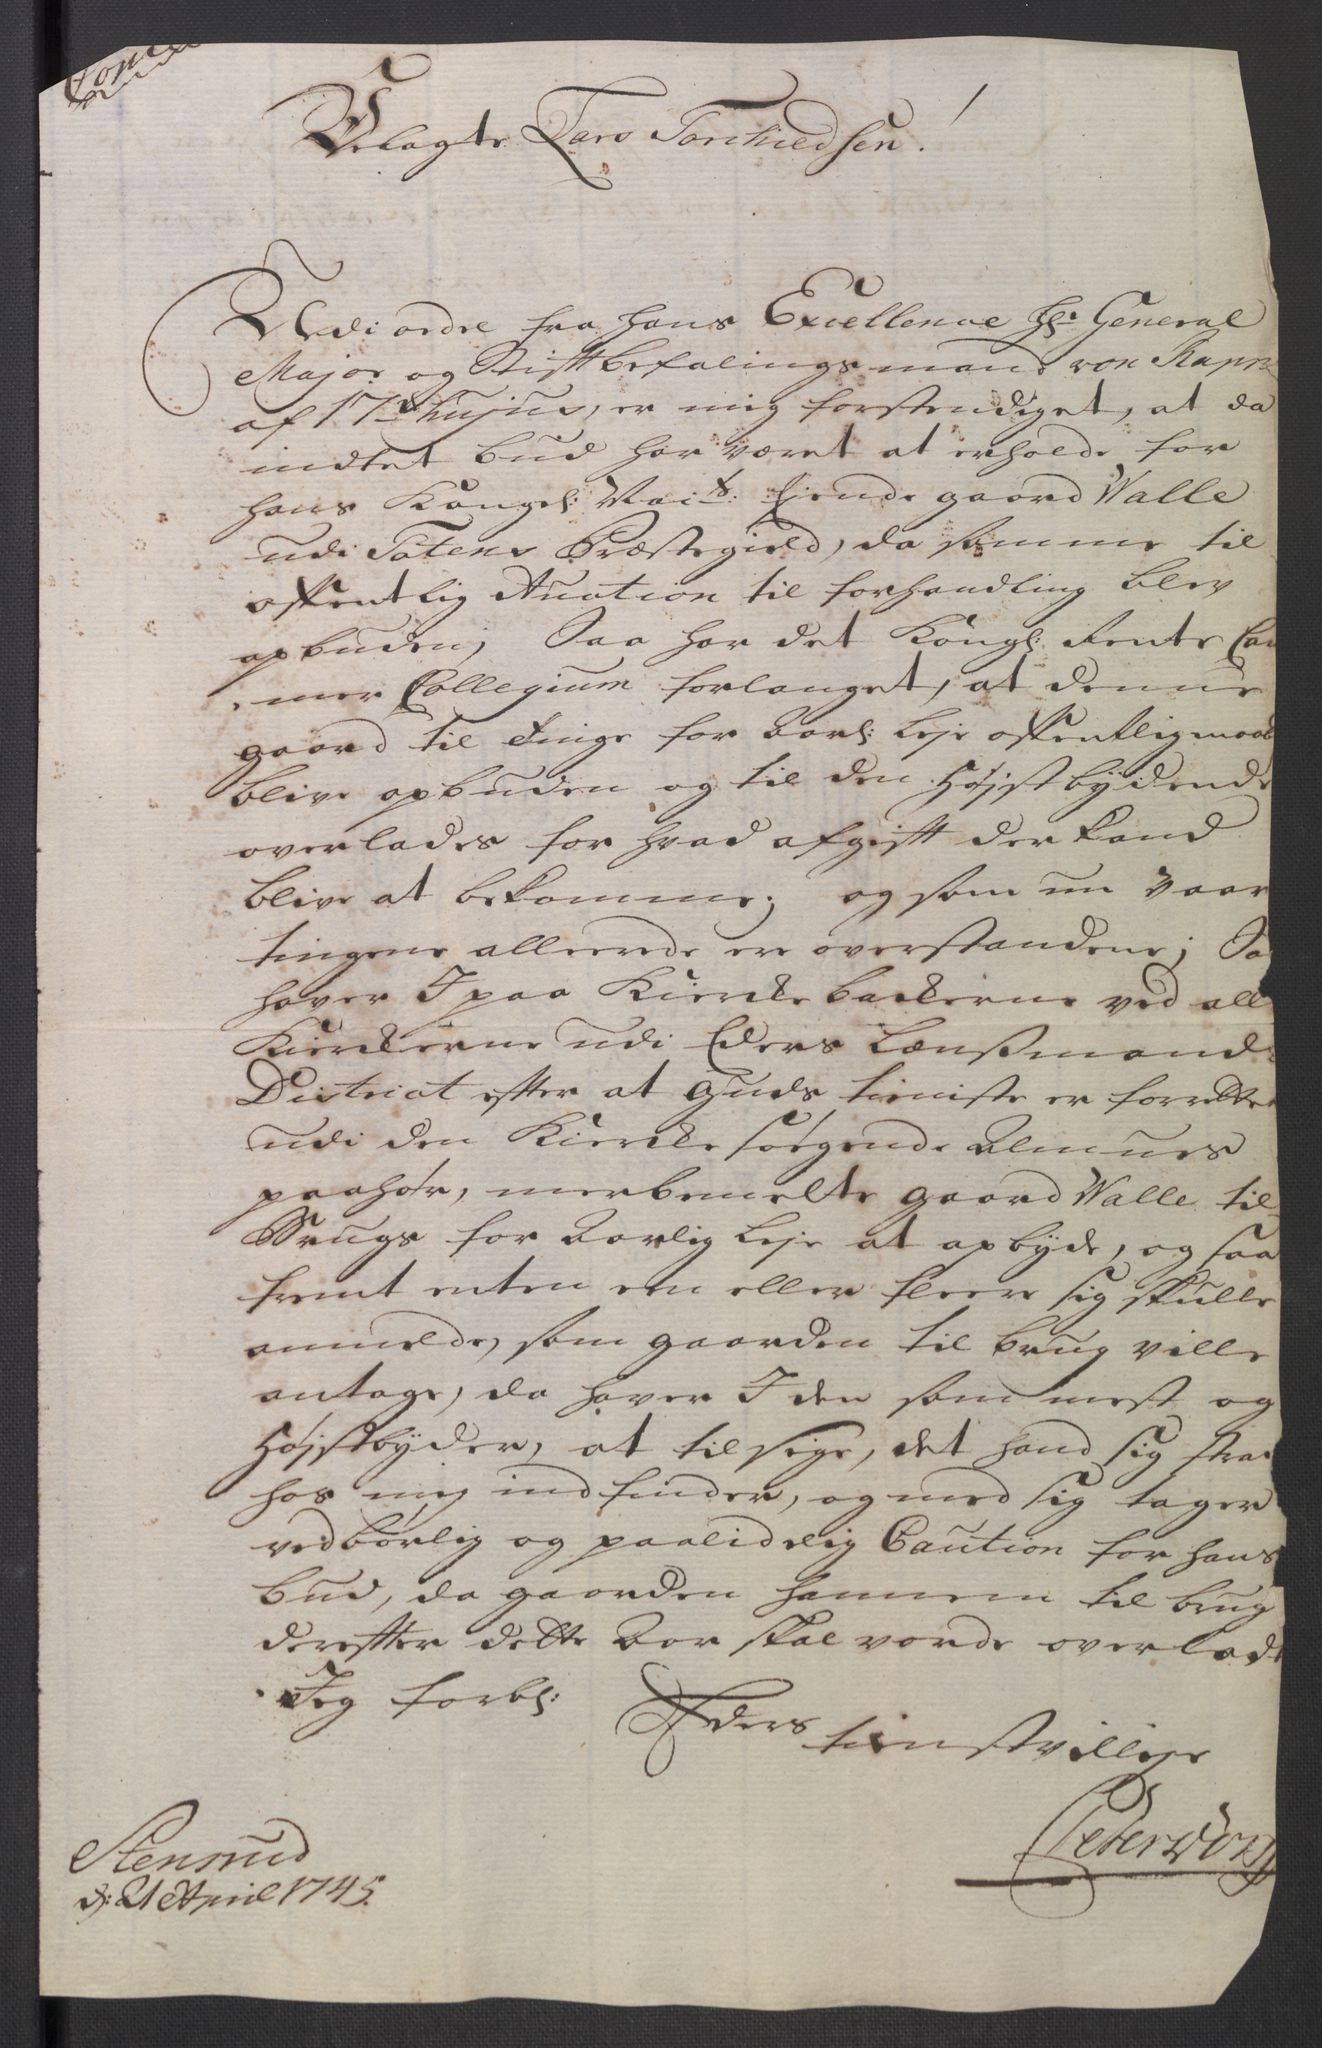 Velagte Lars Torkieldsen!
Udi ordre fra Hans Excellence Hr. General
Major og Stiftbefalingsmand von Rappe
af 17de hujus, er mig forstendiget, at da
indtet bud har været at erholde for
Hans Kongel: Mai:ts: Ejende gaard Walle
udi Totens Præstegield, da samme til
offentlig Auction til forhandling blev
opbuden, Saa har det Kongl: Rente Cam
mer Collegium forlanget, at denne
gaard til Tinge for Aarl: Leje offentlig maa
blive opbuden og til den Højstbydende
overlades for hvad afgift der kand
blive at bekomme; og som nu Vaar
tingene allereede ere overstandene; Saa
haver I paa Kierkebackerne ved alle
Kierkerne udi Eders Lænsmands
District efter at Guds tieniste er forrettet
udi den Kierkesøgende Almues
paahør, merbemelte gaard Walle til
Brugs for Aarlig Leje at opbyde, og saa
fremt enten een eller fleere sig skulle
anmelde, som gaarden til brug ville
antage, da haver I den som mest og
Højstbyder, at tilsige, det hand sig strax
hos mig indfinder, og med sig tager
vedbørlig og paalidelig Caution for hans
bud, da gaarden hannem til brug
derefter dette Aar skal vorde overladt
Jeg forbl:
Eders
tienstvillige
Stensrud
d: 21 April 1745.
Peter